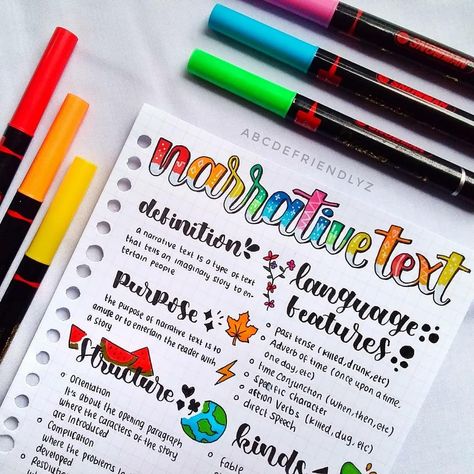 ABCDEFRIENDLYZ
narrative text
definition
a narrative text is a type of text
that tells an imaginary story to en-
tertain people
purpose
the purpose of narrative text is to
amuse or to entertain the reader with
a story
Structure
Orientation
It's about the opening paragraph
where the caracters of the story
are introduced
Complication
where the problems in
developed
language
features
Past tense (killed, drunk, etc)
Adverb of time (once upon a time,
one day, etc)
time Conjunction (when, then, etc)
Specific Character
action Verbs (killed, dug, etc)
direct Speech
kinds
Fable